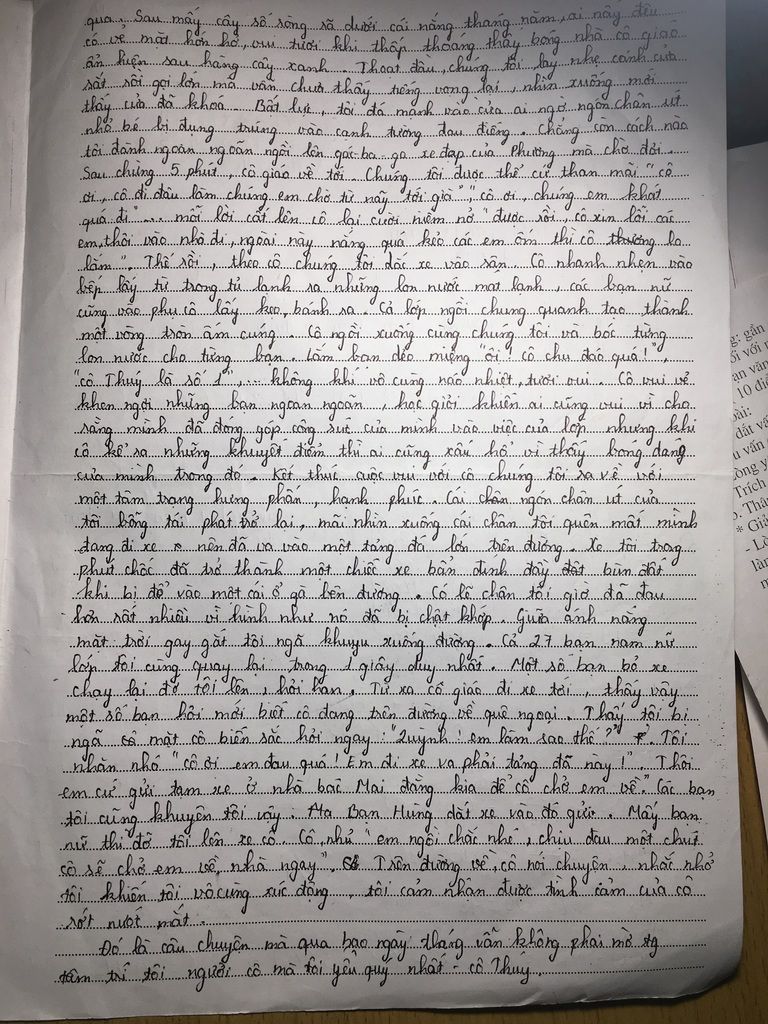 qua. Sau mấy cây số ròng rã dưới cái nắng tháng năm, ai nấy đều
có vẻ mặt hớn hở, vui tươi khi thấp thoáng thấy bóng nhà cô giáo
ẩn hiện sau hàng cây xanh. Thoạt đầu, chúng tôi lay nhẹ cánh cửa
sắt rồi gọi lớn mà vẫn chưa thấy tiếng vọng lại, nhìn xuống mới
thấy cửa đã khoá. Bất lực, tôi đá mạnh vào cửa ai ngờ ngón chân út
nhỏ bé bị đụng trúng vào cạnh tường đau điếng. Chẳng còn cách nào
tôi đành ngoan ngoãn ngồi lên gác-ba-ga xe đạp của Phương mà chờ đợi.
Sau chừng 5 phút, cô giáo về tới. Chúng tôi được thế cứ than mãi "cô
ơi, cô đi đâu làm chúng em chờ từ nãy tới giờ", "cô ơi, chúng em khát
quá đi"... mỗi lời cất lên cô lại cười niềm nở "được rồi, cô xin lỗi các
em, thôi vào nhà đi, ngoài này nắng quá kẻo các em ốm thì cô thương lo
lắm". Thế rồi, theo cô chúng tôi dắt xe vào sân. Cô nhanh nhẹn vào
bếp lấy từ trong tủ lạnh ra những lon nước mát lạnh, các bạn nữ
cũng vào phụ cô lấy kẹo, bánh ra. Cả lớp ngồi chung quanh tạo thành
một vòng tròn ấm cúng. Cô ngồi xuống cùng chúng tôi và bóc từng
lon nước cho từng bạn. Lắm bạn dẻo miệng "ôi! cô chu đáo quá!",
"cô Thuý là số 1",... không khí vô cùng náo nhiệt, tươi vui. Cô vui vẻ
khen ngợi những bạn ngoan ngoãn, học giỏi khiến ai cũng vui vì cho
rằng mình đã đóng góp công sức của mình vào việc của lớp nhưng khi
cô kể ra những khuyết điểm thì ai cũng xấu hổ vì thấy bóng dáng
của mình trong đó. Kết thúc cuộc vui với cô chúng tôi ra về với
một tâm trạng hưng phấn, hạnh phúc. Cái ngón chân út của
tôi bỗng tái phát trở lại, mải nhìn xuống cái chân tôi quên mất mình
đang đi xe nên đã va vào một tảng đá lớn trên đường. Xe tôi trong
phút chốc đã trở thành một chiếc xe bẩn dính đầy đất bùn đất
khi bị đổ vào một cái ổ gà bên đường. Có lẽ chân tôi giờ đã đau
hơn rất nhiều vì hình như nó đã bị chật khớp. Giữa ánh nắng
mặt trời gay gắt tôi ngã khuỵu xuống đường. Cả 27 bạn nam nữ
lớp tôi cùng quay lại trong 1 giây duy nhất. Một số bạn bỏ xe
chạy lại đỡ tôi lên, hỏi han. Từ xa cô giáo đi xe tới, thấy vậy
một số bạn hỏi mới biết cô đang trên đường về quê ngoại. Thấy tôi bị
ngã mặt cô biến sắc hỏi ngay: "Quỳnh! em làm sao thế?". Tôi
nhăn nhó "cô ơi em đau quá! Em đi xe va phải tảng đá này!". Thôi
em cứ gửi tạm xe ở nhà bác Mai đằng kia để cô chở em về." Các bạn
tôi cũng khuyên tôi vậy. Mà Bạn Hùng dắt xe vào đó gửi. Mấy bạn
nữ thì đỡ tôi lên xe cô. Cô nhủ "em ngồi chắc nhé, chịu đau một chút
cô sẽ chở em về nhà ngay". Trên đường về, cô nói chuyện, nhắc nhở
tôi khiến tôi vô cùng xúc động, tôi cảm nhận được tình cảm của cô
rớt nước mắt.
Đó là câu chuyện mà qua bao ngày tháng vẫn không phai mờ tg
tâm trí tôi người cô mà tôi yêu quý nhất - cô Thuý.